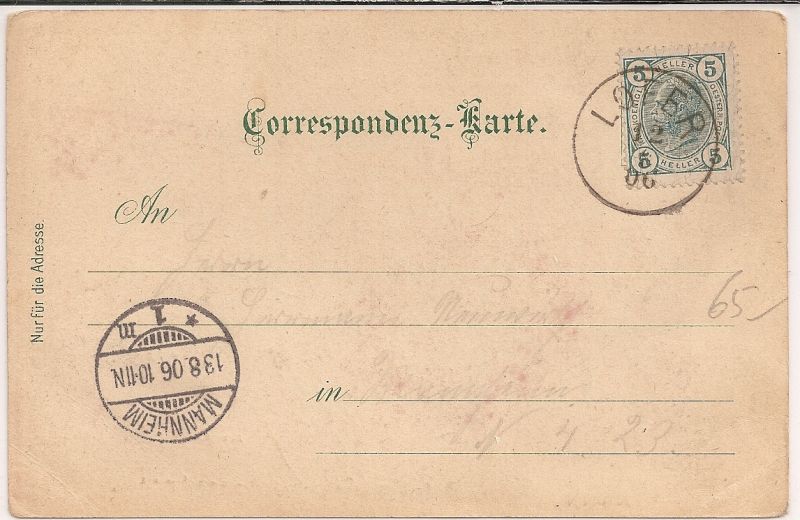 Correspondenz-Karte.
5 HELLER 5
5 HELLER 5
LOFER
06
An
Nur für die Adresse.
Herrn
65
1
m
13.8.06.10-11N.
MANNHEIM
in Mannheim
4. 23.